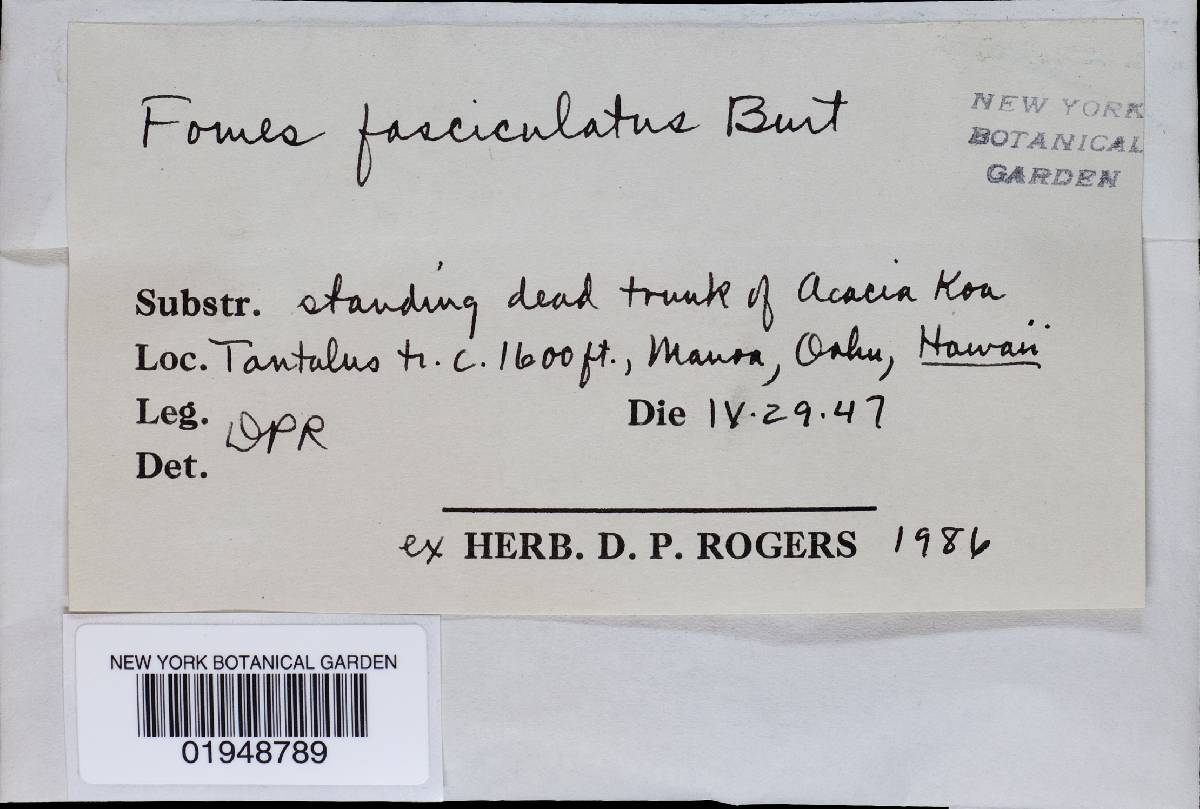 Fomes fasciculatus Burt
NEW YORK
BOTANICAL
GARDEN
Substr. standing dead trunk of Acacia Koa
Loc. Tantalus tr. c. 1600 ft., Manoa, Oahu, Hawaii
Leg. DPR
Die IV.29.47
Det.
ex HERB. D. P. ROGERS 1986
NEW YORK BOTANICAL GARDEN
01948789